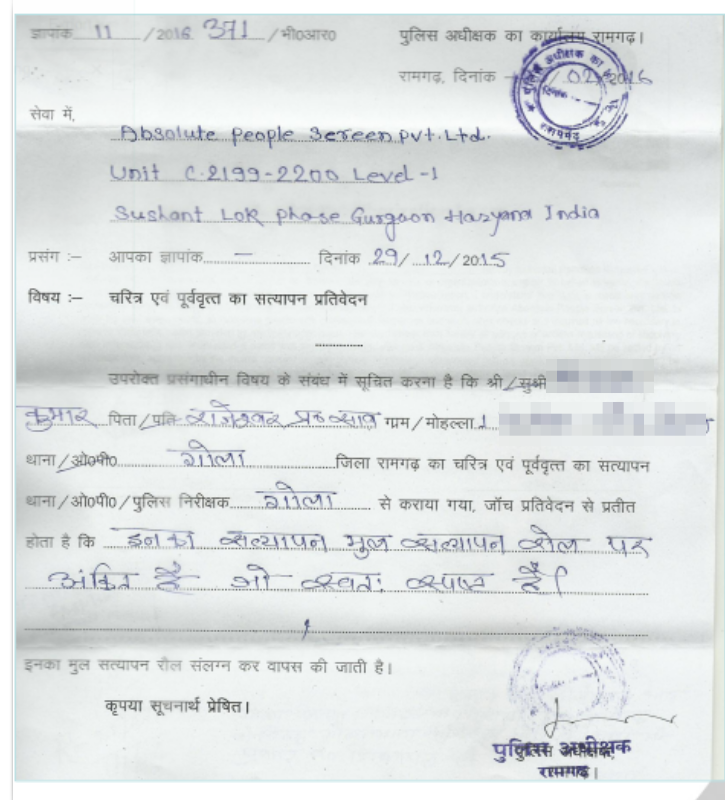 ज्ञापांक 11 /2016 371 /मी०आर०
पुलिस अधीक्षक का कार्यालय रामगढ़।
रामगढ़, दिनांक /02/2016
सेवा में,
Absolute People Screen Pvt. Ltd.
Unit C-2199-2200 Level-1
Sushant Lok Phase Gurgaon Haryana India
प्रसंग :– आपका ज्ञापांक — दिनांक 29/12/2015
विषय :– चरित्र एवं पूर्ववृत्त का सत्यापन प्रतिवेदन
उपरोक्त प्रसंगाधीन विषय के संबंध में सूचित करना है कि श्री/सुश्री
कुमार पिता/पति राजेश्वर प्र० साव ग्राम/मोहल्ला
थाना/ओ०पी० गोला जिला रामगढ़ का चरित्र एवं पूर्ववृत्त का सत्यापन
थाना/ओ०पी०/पुलिस निरीक्षक गोला से कराया गया, जाँच प्रतिवेदन से प्रतीत
होता है कि इनका सत्यापन मुल सत्यापन रोल पर
अंकित है जो स्वतः स्पष्ट है।
इनका मुल सत्यापन रौल संलग्न कर वापस की जाती है।
कृपया सूचनार्थ प्रेषित।
पुलिस अधीक्षक
रामगढ़।